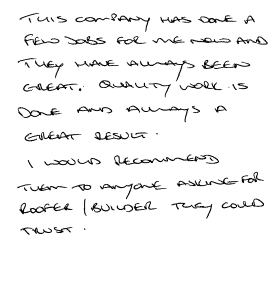 THIS COMPANY HAS DONE A
FEW JOBS FOR ME NOW AND
THEY HAVE ALWAYS BEEN
GREAT. QUALITY WORK IS
DONE AND ALWAYS A
GREAT RESULT.
I WOULD RECOMMEND
THEM TO ANYONE ASKING FOR
ROOFER / BUILDER THEY COULD
TRUST.